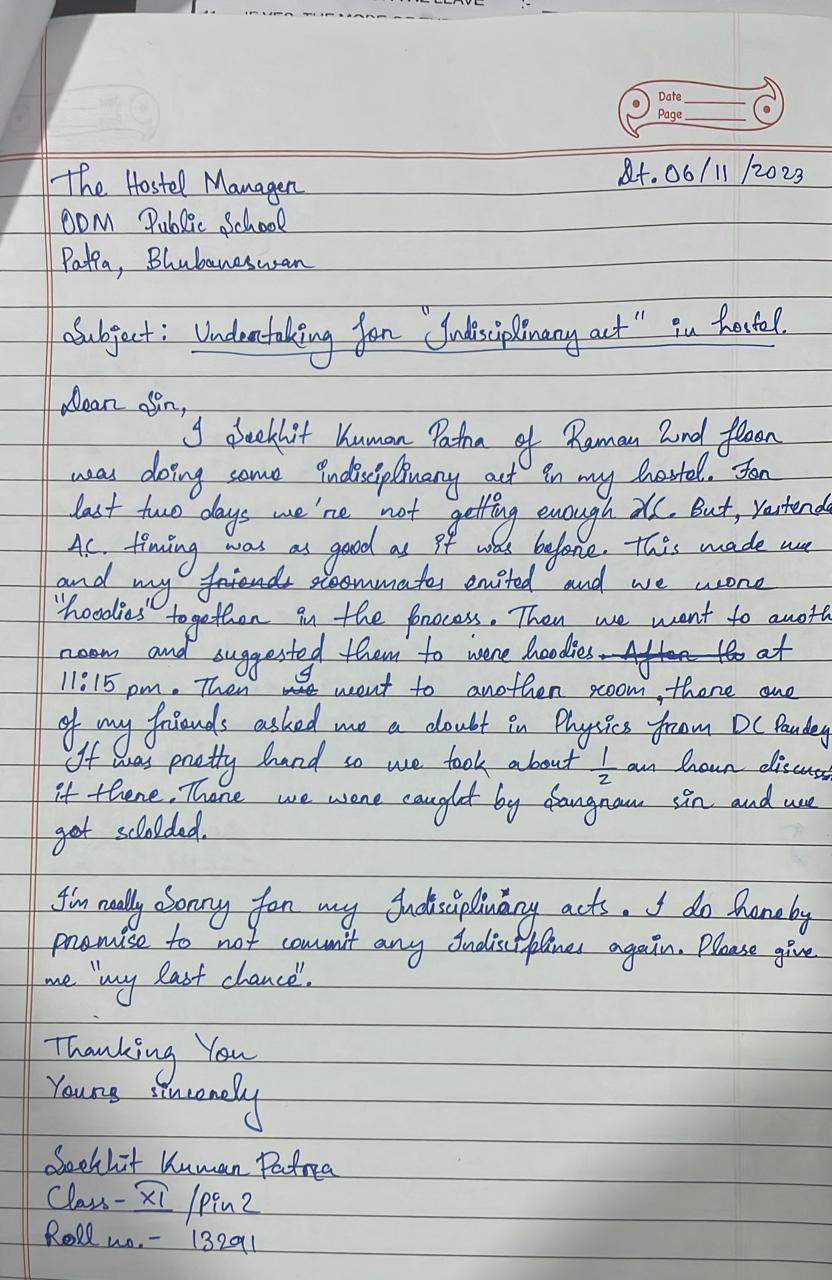 Date
Page
Dt. 06/11/2023
The Hostel Manager
ODM Public School
Patia, Bhubaneswar
Subject: Undertaking for "Indisciplinary act" in hostel.
Dear Sir,
I Seekhit Kumar Patra of Raman 2nd floor
was doing some indisciplinary act in my hostel. For
last two days we're not getting enough AC. But, Yesterda
A.C. timing was as good as it was before. This made me
and my friends roommates exited and we wore
"hoodies" together in the process. Then we went to anoth
room and suggested them to were hoodies. After the at
11:15 pm. Then I went to another room, there one
of my friends asked me a doubt in Physics from DC Pandey
It was pretty hard so we took about 1/2 an hour discuss
it there. There we were caught by Sangram sir and we
got sclolded.
I'm really Sorry for my Indisciplinary acts. I do hereby
promise to not commit any Indisciplines again. Please give
me "my last chance".
Thanking You
Yours sincerely
Seekhit Kumar Patra
Class - XI /Pin 2
Roll no. - 13291